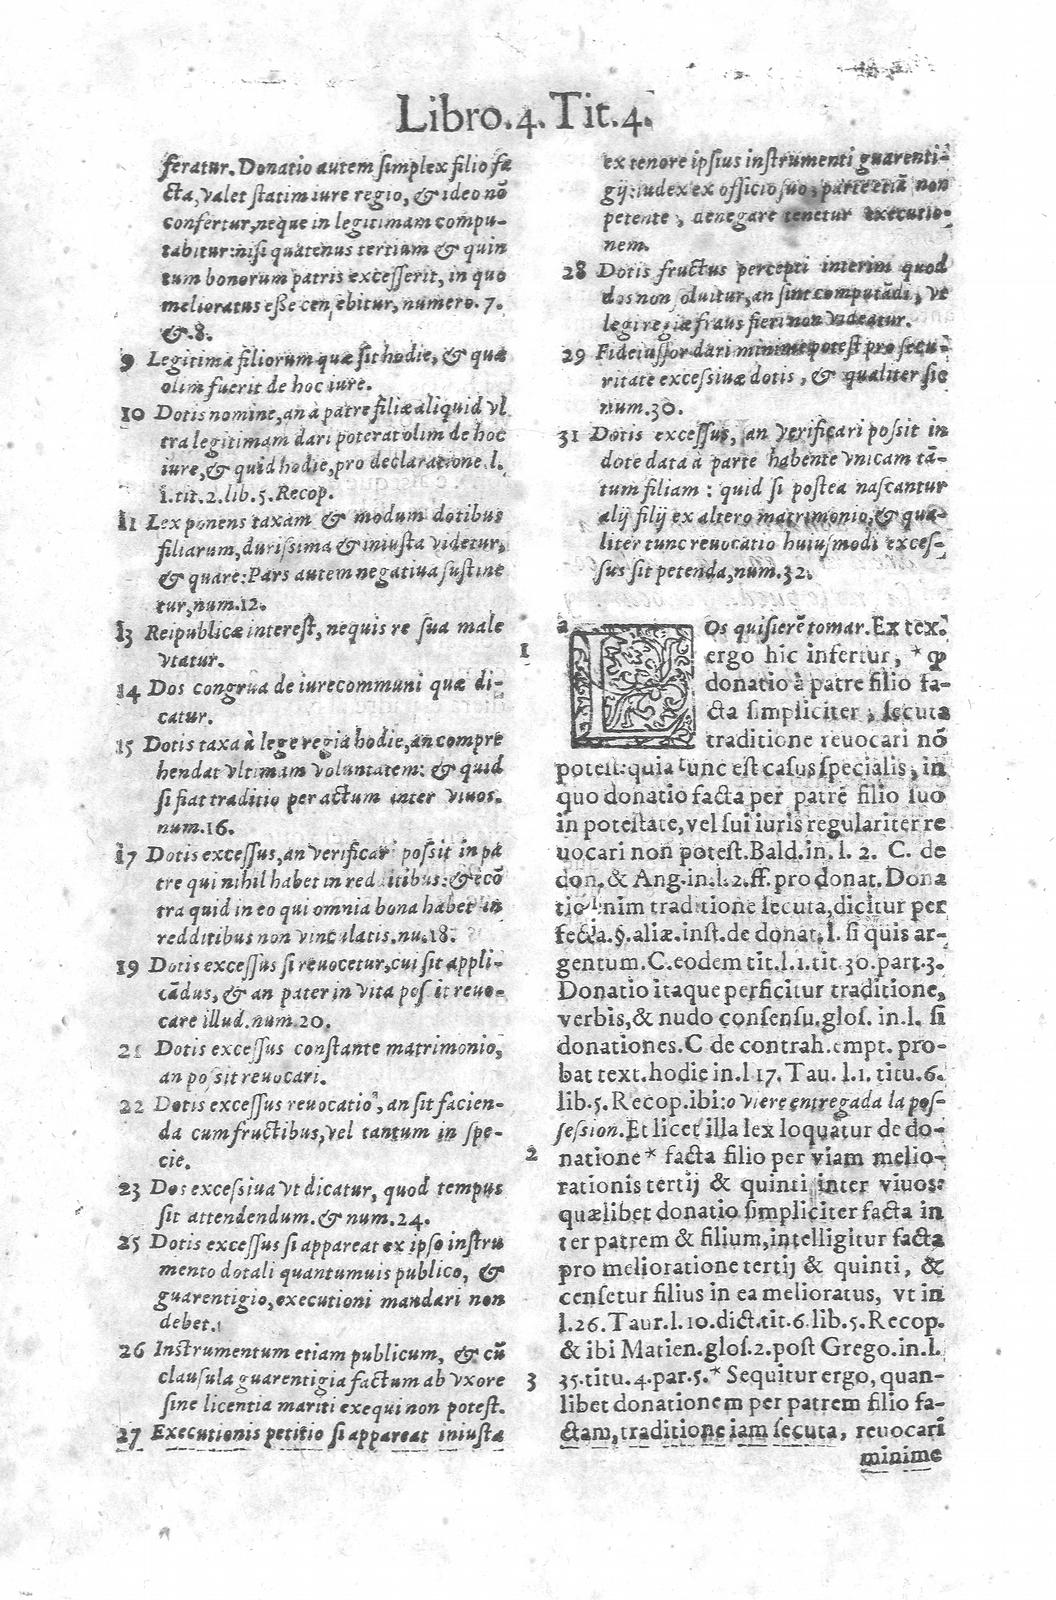 Libro.4.Tit.4.
feratur. Donatio autem simplex filio fa
cta, valet statim iure regio, & ideo nõ
confertur, neque in legitimam compu-
tabitur: nisi quatenus tertium & quin
tum bonorum patris excesserit, in quo
melioratus esse censebitur, numero. 7.
&.8.
9 Legitima filiorum quæ sit hodie, & quæ
olim fuerit de hoc iure.
10 Dotis nomine, an à patre filiæ aliquid vl
tra legitimam dari poterat olim de hoc
iure, & quid hodie, pro declaratione. l.
1. tit. 2. lib. 5. Recop.
11 Lex ponens taxam & modum dotibus
filiarum, durissima & iniusta videtur,
& quare: Pars autem negatiua sustine
tur, num. 12.
13 Reipublicæ interest, nequis re sua male
vtatur.
14 Dos congrua de iure communi quæ di-
catur.
15 Dotis taxa à lege regia hodie, an compre
hendat vltimam voluntatem: & quid
si fiat traditio per actum inter viuos.
num. 16.
17 Dotis excessus, an verificari possit in pa
tre qui nihil habet in redditibus: & ecõ
tra quid in eo qui omnia bona habet in
redditibus non vinculatis, nu. 18.
19 Dotis excessus si reuocetur, cui sit appli-
cãdus, & an pater in vita possit reuo-
care illud. num. 20.
21 Dotis excessus constante matrimonio,
an possit reuocari.
22 Dotis excessus reuocatio, an sit facien-
da cum fructibus, vel tantum in spe-
cie.
23 Dos excessiua vt dicatur, quod tempus
sit attendendum. & num. 24.
25 Dotis excessus si appareat ex ipso instru
mento dotali quantumuis publico, &
guarentigio, executioni mandari non
debet.
26 Instrumentum etiam publicum, & cũ
clausula guarentigia factum ab vxore
sine licentia mariti exequi non potest.
27 Executionis petitio si appareat iniusta
ex tenore ipsius instrumenti guarenti-
gij: iudex ex officio suo, parte etiã non
petente, denegare tenetur executio-
nem.
28 Dotis fructus percepti interim quod
dos non soluitur, an sint computãdi, vt
legi regiæ fraus fieri non videatur.
29 Fideiussor dari minime potest pro secu-
ritate excessiuæ dotis, & qualiter sic
num. 30.
31 Dotis excessus, an verificari possit in
dote data à parte habente vnicam tã-
tum filiam: quid si postea nascantur
alij filij ex altero matrimonio, & qua-
liter tunc reuocatio huiusmodi exces-
sus sit petenda, num. 32.
a Los quisierẽ tomar. Ex tex.
1 ergo hic infertur, * ꝙ
donatio à patre filio fa-
cta simpliciter, secuta
traditione reuocari nõ
potest: quia tunc est casus specialis, in
quo donatio facta per patrẽ filio suo
in potestate, vel sui iuris regulariter re
uocari non potest. Bald. in. l. 2. C. de
don. & Ang. in. l. 2. ff. pro donat. Dona
tio enim traditione secuta, dicitur per
fecta. §. aliæ. inst. de donat. l. si quis ar-
gentum. C. eodem tit. l. 1. tit. 30. part. 3.
Donatio itaque perficitur traditione,
verbis, & nudo consensu. glos. in. l. si
donationes. C de contrah. empt. pro-
bat text. hodie in. l 17. Tau. l. 1. titu. 6.
lib. 5. Recop. ibi: o viere entregada la pos-
session. Et licet illa lex loquatur de do-
2 natione * facta filio per viam melio-
rationis tertij & quinti inter viuos:
quælibet donatio simpliciter facta in
ter patrem & filium, intelligitur facta
pro melioratione tertij & quinti, &
censetur filius in ea melioratus, vt in
l. 26. Taur. l. 10. dict. tit. 6. lib. 5. Recop.
& ibi Matien. glos. 2. post Grego. in. l.
3 35. titu. 4. par. 5. * Sequitur ergo, quan-
libet donationem per patrem filio fa-
ctam, traditione iam secuta, reuocari
minime